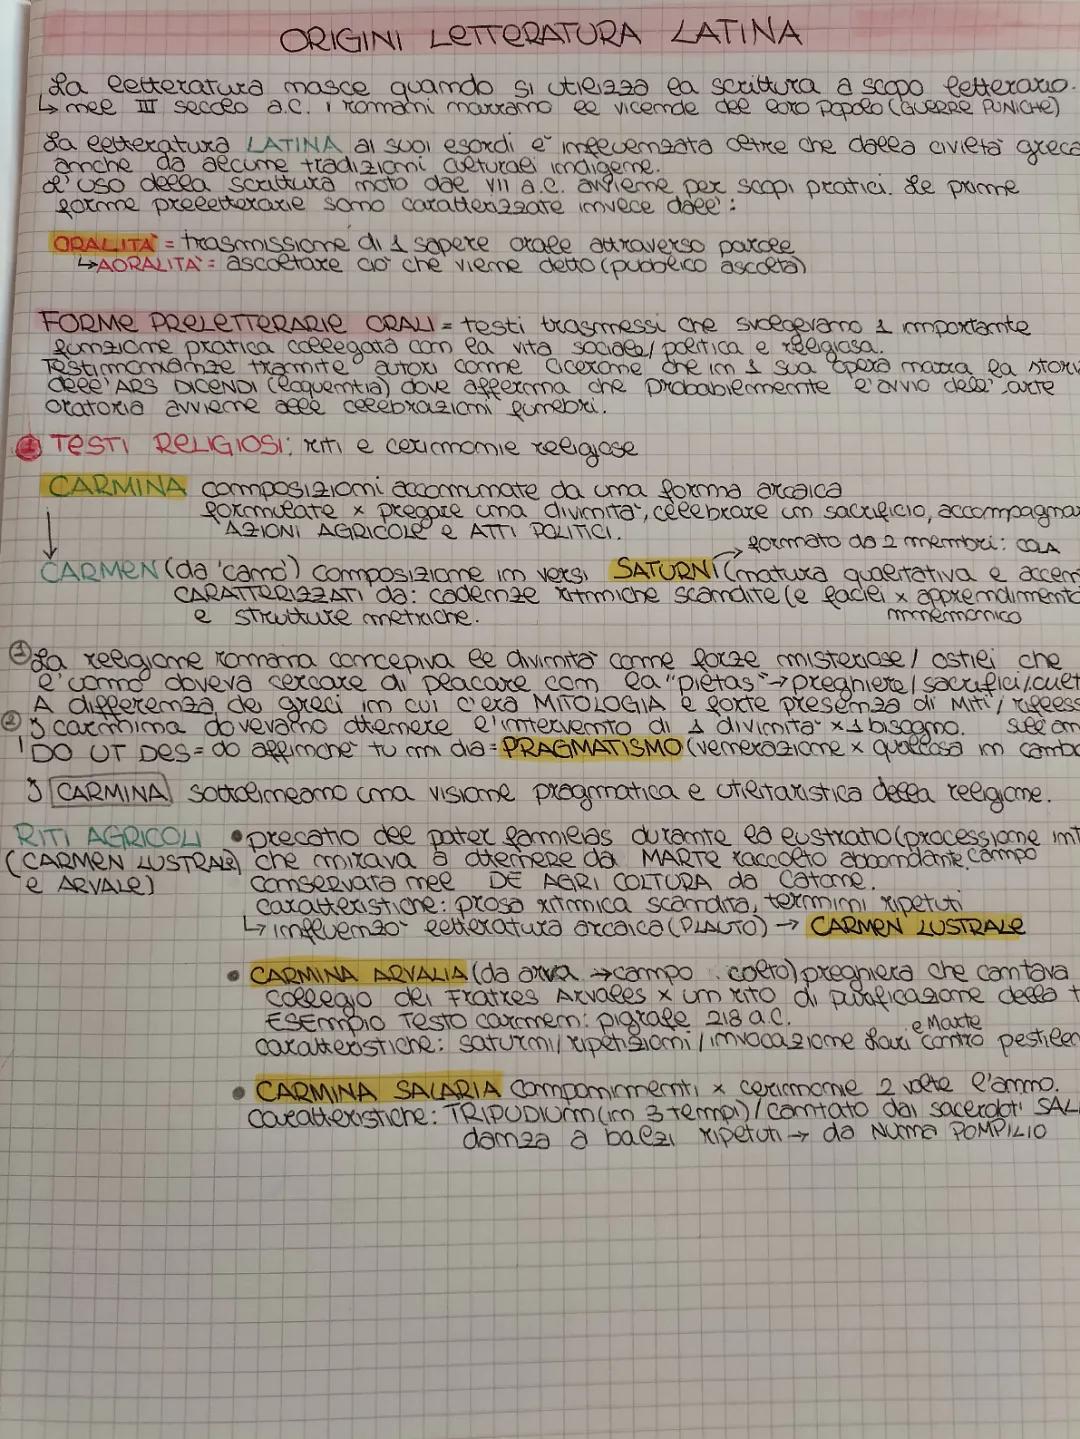 ORIGINI LETTERATURA LATINA
La letteratura nasce quando si utilizza la scrittura a scopo letterario.
↳ nel III secolo a.C. i romani narrano le vicende del loro popolo (GUERRE PUNICHE)
La letteratura LATINA ai suoi esordi è influenzata oltre che dalla civiltà greca
anche da alcune tradizioni culturali indigene.
L'uso della scrittura noto dal VII a.C. avviene per scopi pratici. Le prime
forme preletterarie sono caratterizzate invece dall':
ORALITÀ = trasmissione di 1 sapere orale attraverso parole
↳AORALITÀ = ascoltare ciò che viene detto (pubblico ascolta)
FORME PRELETTERARIE ORALI = testi trasmessi che svolgevano 1 importante
funzione pratica collegata con la vita sociale/politica e religiosa.
Testimonianze tramite autori come Cicerone che in 1 sua opera narra la stori
dell'ARS DICENDI (eloquentia) dove afferma che probabilmente l'avvio dell'arte
oratoria avviene alle celebrazioni funebri.
1 TESTI RELIGIOSI: riti e cerimonie religiose
CARMINA composizioni accomunate da una forma arcaica
formulate x pregare una divinità, celebrare un sacrificio, accompagna
AZIONI AGRICOLE e ATTI POLITICI.
→ formato da 2 membri: COLA
CARMEN (da 'cano') composizione in versi SATURNI (natura qualitativa e accen
CARATTERIZZATI da: cadenze ritmiche scandite (e facili x apprendimento
e strutture metriche. mnemonico
① La religione romana concepiva le divinità come forze misteriose/ostili che
l'uomo doveva cercare di placare con la "pietas" → preghiere/sacrifici/cult
A differenza dei greci in cui c'era MITOLOGIA e forte presenza di Miti/rifless
② I carmina dovevano ottenere l'intervento di 1 divinità x 1 bisogno.
'DO UT DES = do affinché tu mi dia = PRAGMATISMO (venerazione x qualcosa in camb
I CARMINA sottolineano una visione pragmatica e utilitaristica della religione.
RITI AGRICOLI • precatio del pater familias durante la lustratio (processione
(CARMEN LUSTRALE che mirava a ottenere da MARTE raccolto abbondante campo
e ARVALE) conservata nel DE AGRI COLTURA da Catone.
caratteristiche: prosa ritmica scandita, termini ripetuti
↳ influenzò letteratura arcaica (PLAUTO) → CARMEN LUSTRALE
• CARMINA ARVALIA (da arva → campo colto) preghiera che cantava
collegio dei Fratres Arvales x un rito di purificazione della t
ESEmpio Testo carmen: pigrafe 218 a.C.
e Marte
caratteristiche: saturni/ripetizioni/invocazione Lari contro pestilen
• CARMINA SALARIA Componimenti x cerimonie 2 volte l'anno.
caratteristiche: TRIPUDIUm (in 3 tempi)/cantato dai sacerdoti SAL
danza a balzi ripetuti → da NUMA POMPILIO